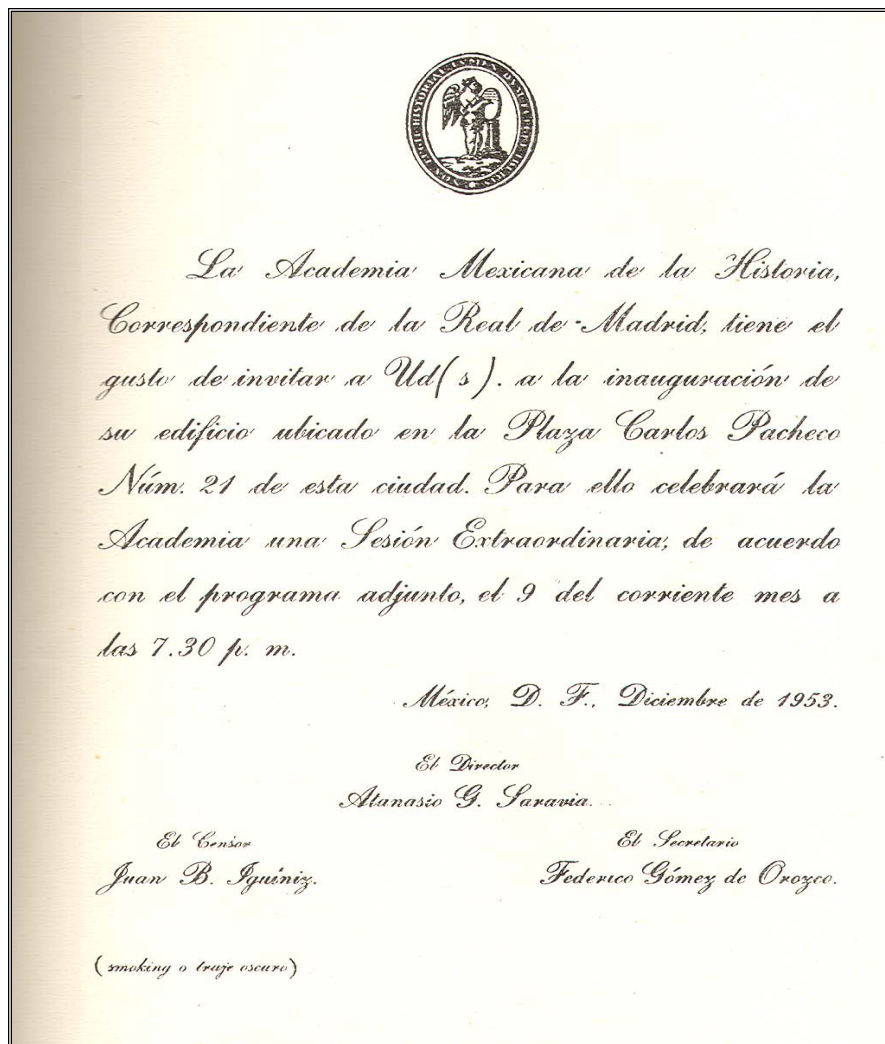 La Academia Mexicana de la Historia,
Correspondiente de la Real de Madrid, tiene el
gusto de invitar a Ud(s). a la inauguración de
su edificio ubicado en la Plaza Carlos Pacheco
Núm. 21 de esta ciudad. Para ello celebrará la
Academia una Sesión Extraordinaria, de acuerdo
con el programa adjunto, el 9 del corriente mes a
las 7.30 p. m.
México, D. F., Diciembre de 1953.
El Director
Atanasio G. Saravia.
El Censor
Juan B. Iguíniz.
El Secretario
Federico Gómez de Orozco.
(smoking o traje oscuro)